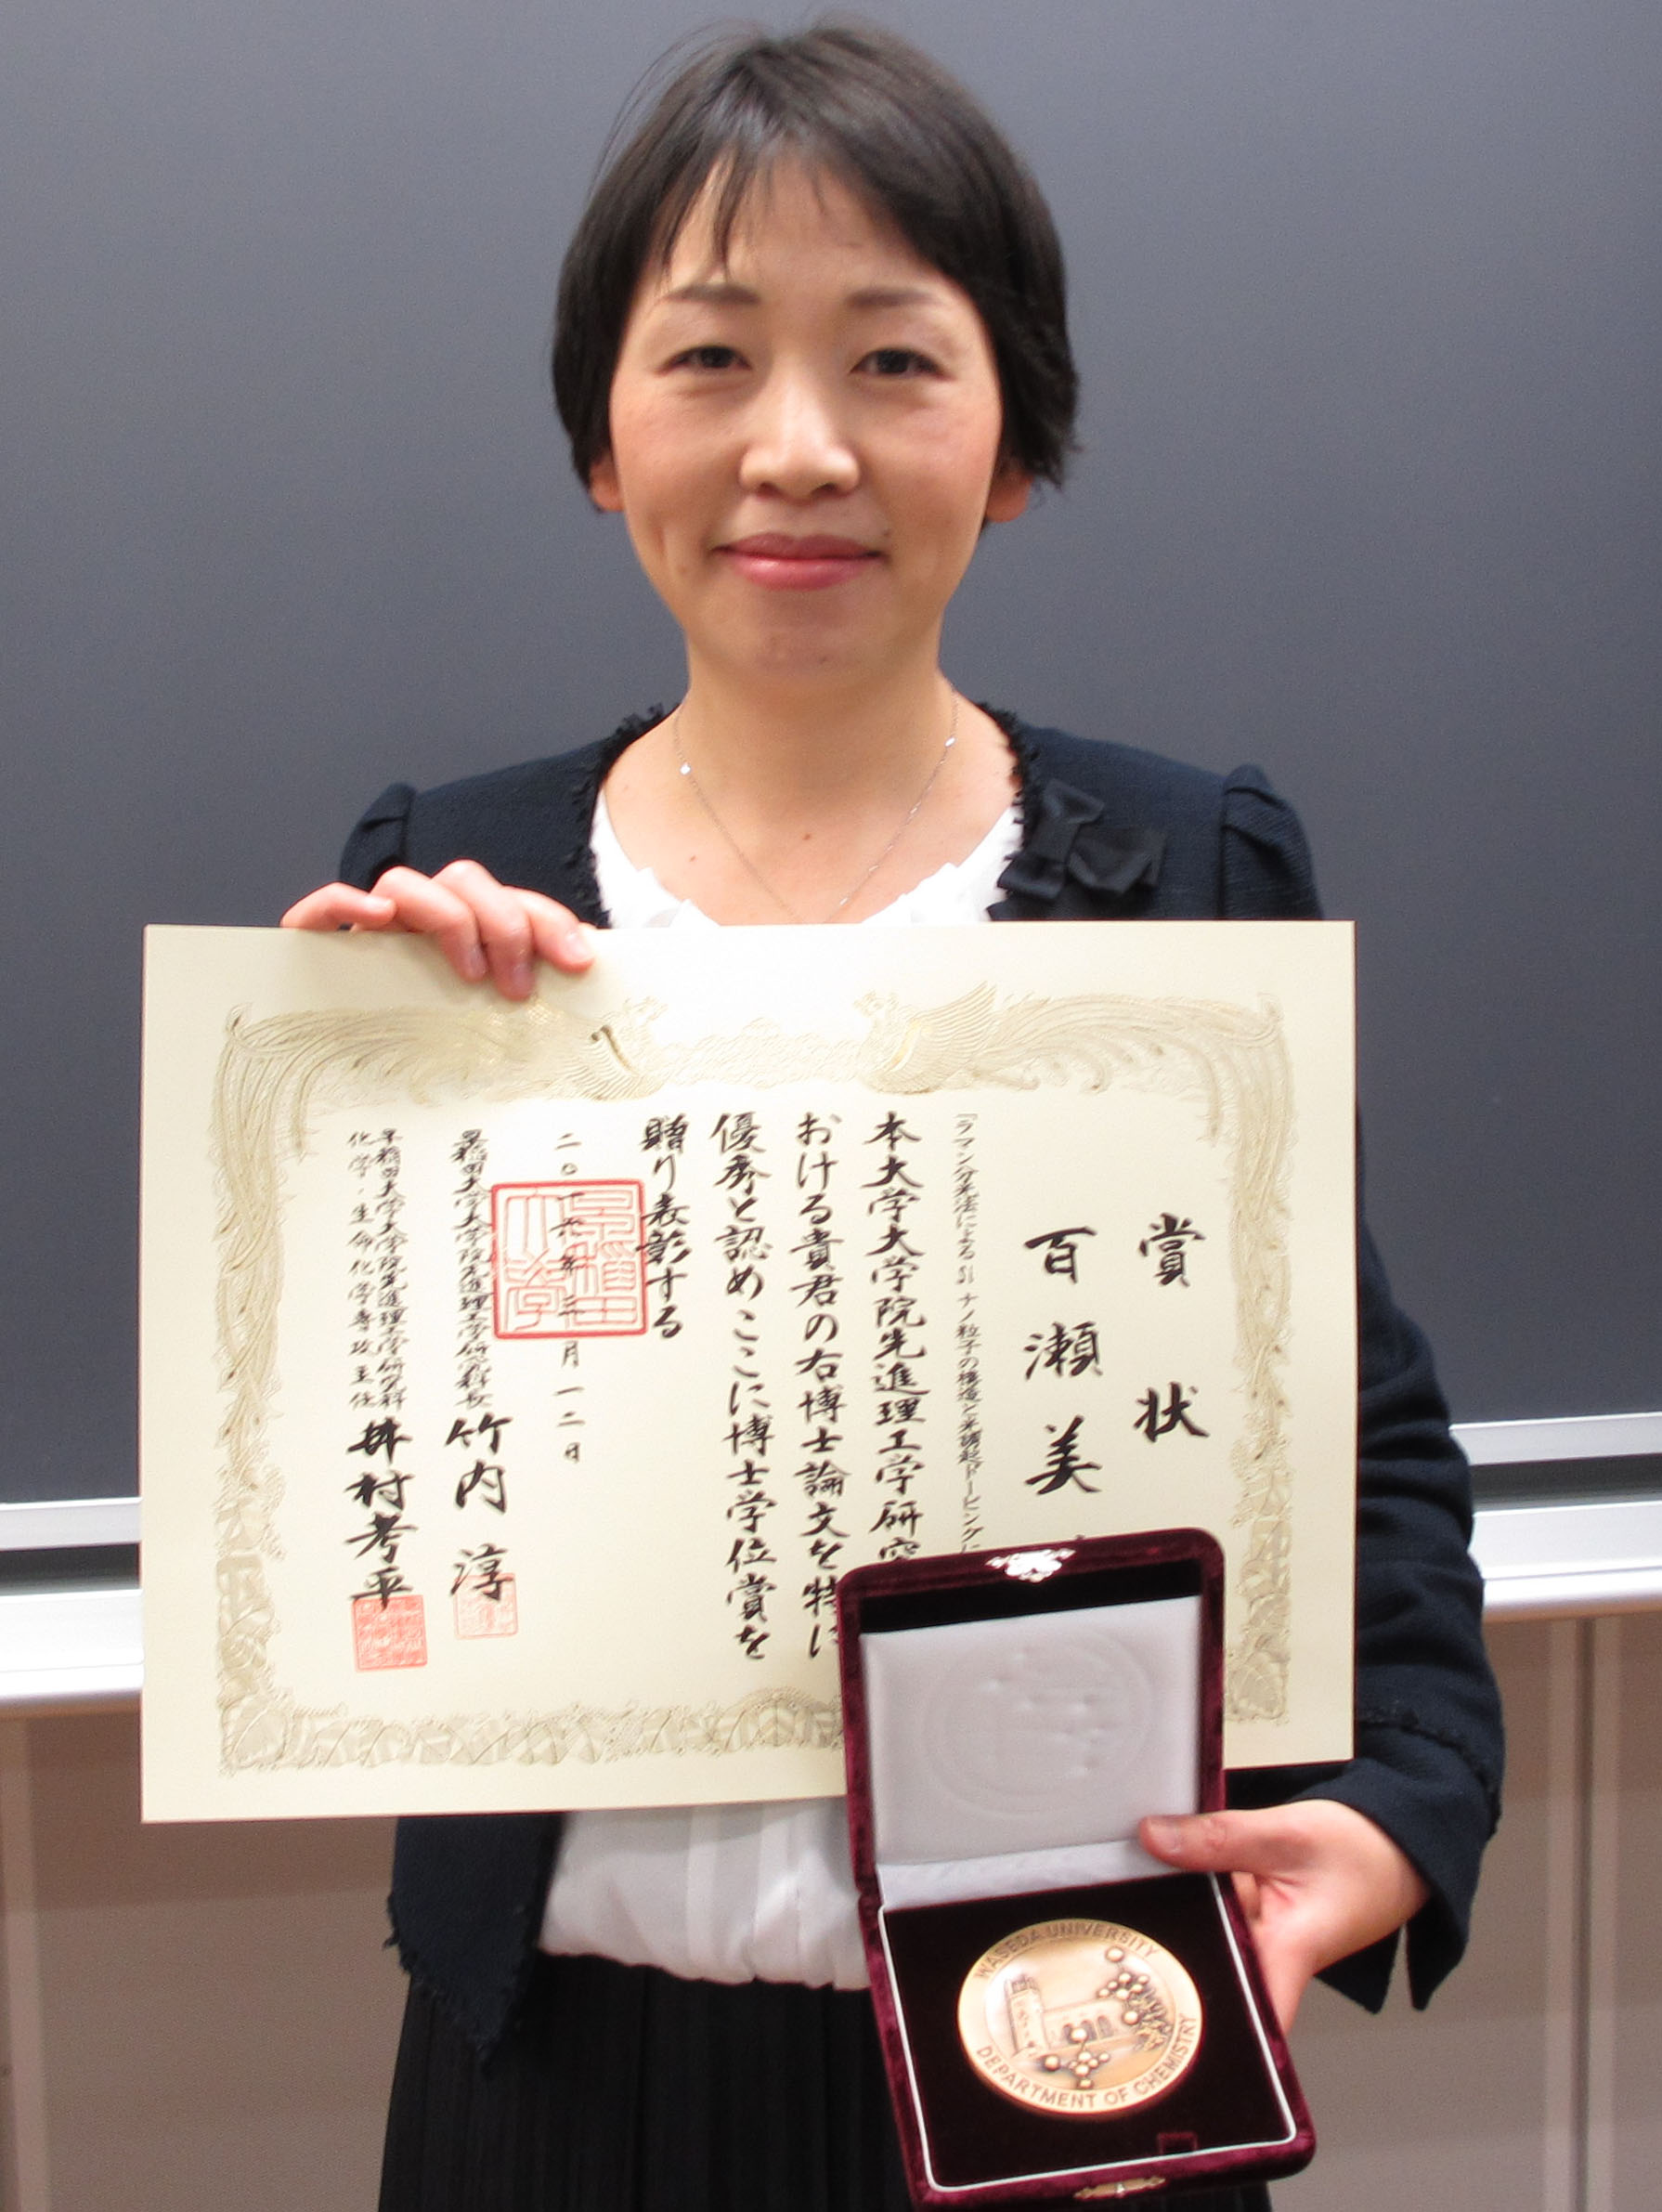 賞状
百瀬美
「ラマン分光法による Si ナノ粒子の構造と光誘起ドーピングに
本大学大学院先進理工学研究
おける貴君の右博士論文を特に
優秀と認めここに博士学位賞を
贈り表彰する
二〇一六年三月一二日
早稲田大学大学院先進理工学研究科長 竹内 淳
早稲田大学大学院先進理工学研究科
化学・生命化学専攻主任 井村考平
早稲田大学
WASEDA UNIVERSITY
DEPARTMENT OF CHEMISTRY